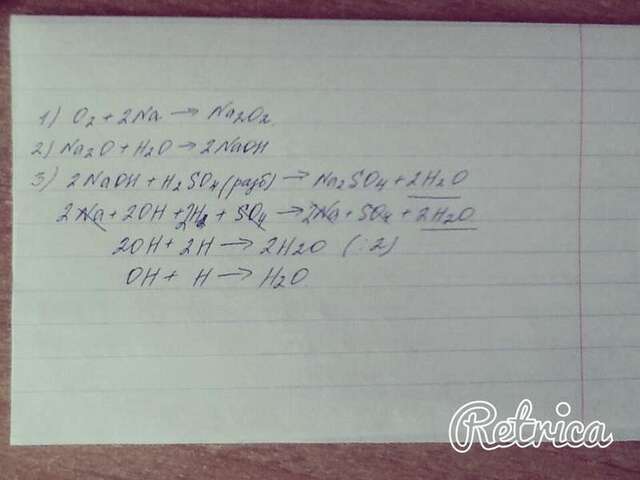 1) O₂ + 2Na → Na₂O₂.
2) Na₂O + H₂O → 2NaOH
3) 2NaOH + H₂SO₄ (разб) → Na₂SO₄ + 2H₂O
2Na + 2OH + 2H₂ + SO₄ → 2Na + SO₄ + 2H₂O
2OH + 2H → 2H₂O (:2)
OH + H → H₂O.
Retrica